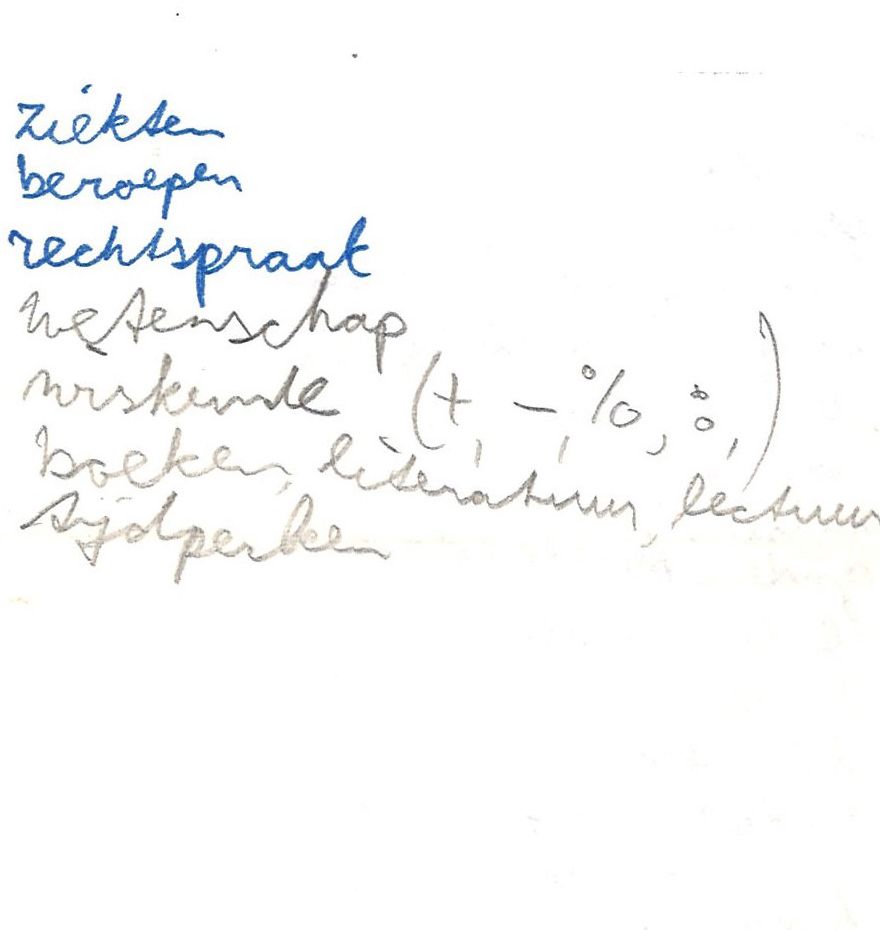 ziekten
beroepen
rechtspraak
wetenschap
wiskunde (+, -, %, :,)
boeken, literatuur, lectuur
tijdperken